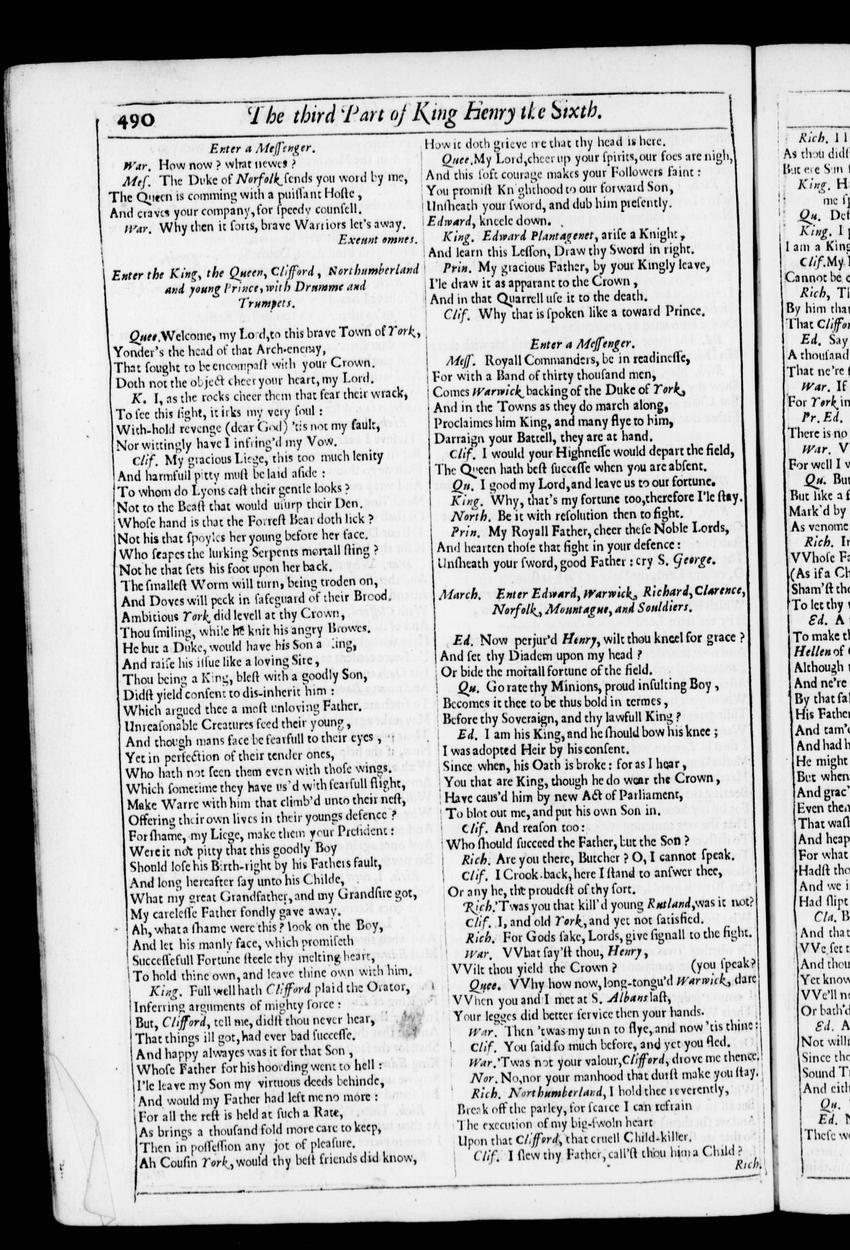 490 The third Part of King Henry the Sixth.
Enter a Meſſenger.
War. How now? what newes?
Meſ. The Duke of Norfolk ſends you word by me,
The Queen is comming with a puiſſant Hoſte,
And craves your company, for ſpeedy counſell.
War. Why then it ſorts, brave Warriors let's away.
Exeunt omnes.
Enter the King, the Queen, Clifford, Northumberland
and young Prince, with Drumme and
Trumpets.
Quee. Welcome, my Lord, to this brave Town of York,
Yonder's the head of that Arch-enemy,
That ſought to be encompaſt with your Crown.
Doth not the object cheer your heart, my Lord.
K. I, as the rocks cheer them that fear their wrack,
To ſee this ſight, it irks my very ſoul:
With-hold revenge (dear God) 'tis not my fault,
Nor wittingly have I infring'd my Vow.
Clif. My gracious Liege, this too much lenity
And harmfull pitty muſt be laid aſide:
To whom do Lyons caſt their gentle looks?
Not to the Beaſt that would uſurp their Den.
Whoſe hand is that the Forreſt Bear doth lick?
Not his that ſpoyles her young before her face.
Who ſcapes the lurking Serpents mortall ſting?
Not he that ſets his foot upon her back.
The ſmalleſt Worm will turn, being troden on,
And Doves will peck in ſafeguard of their Brood.
Ambitious York did levell at thy Crown,
Thou ſmiling, while he knit his angry Browes.
He but a Duke, would have his Son a King,
And raiſe his iſſue like a loving Sire,
Thou being a King, bleſt with a goodly Son,
Didſt yield conſent to dis-inherit him:
Which argued thee a moſt unloving Father.
Unreaſonable Creatures feed their young,
And though mans face be fearfull to their eyes,
Yet in perfection of their tender ones,
Who hath not ſeen them even with thoſe wings.
Which ſometime they have us'd with fearfull flight,
Make Warre with him that climb'd unto their neſt,
Offering their own lives in their youngs defence?
For ſhame, my Liege, make them your Preſident:
Were it not pitty that this goodly Boy
Should loſe his Birth-right by his Fathers fault,
And long hereafter ſay unto his Childe,
What my great Grandfather, and my Grandſire got,
My careleſſe Father fondly gave away.
Ah, what a ſhame were this? look on the Boy,
And let his manly face, which promiſeth
Succeſſefull Fortune ſteele thy melting heart,
To hold thine own, and leave thine own with him.
King. Full well hath Clifford plaid the Orator,
Inferring arguments of mighty force:
But, Clifford, tell me, didſt thou never hear,
That things ill got, had ever bad ſucceſſe.
And happy alwayes was it for that Son,
Whoſe Father for his hoording went to hell:
I'le leave my Son my virtuous deeds behinde,
And would my Father had left me no more:
For all the reſt is held at ſuch a Rate,
As brings a thouſand fold more care to keep,
Then in poſſeſſion any jot of pleaſure.
Ah Couſin York, would thy beſt friends did know,
How it doth grieve me that thy head is here.
Quee. My Lord, cheer up your ſpirits, our foes are nigh,
And this ſoft courage makes your Followers faint:
You promiſt Knighthood to our forward Son,
Unſheath your ſword, and dub him preſently.
Edward, kneele down.
King. Edward Plantagenet, ariſe a Knight,
And learn this Leſſon, Draw thy Sword in right.
Prin. My gracious Father, by your Kingly leave,
I'le draw it as apparant to the Crown,
And in that Quarrell uſe it to the death.
Clif. Why that is ſpoken like a toward Prince.
Enter a Meſſenger.
Meſſ. Royall Commanders, be in readineſſe,
For with a Band of thirty thouſand men,
Comes Warwick backing of the Duke of York,
And in the Towns as they do march along,
Proclaimes him King, and many flye to him,
Darraign your Battell, they are at hand.
Clif. I would your Highneſſe would depart the field,
The Queen hath beſt ſucceſſe when you are abſent.
Qu. I good my Lord, and leave us to our fortune.
King. Why, that's my fortune too, therefore I'le ſtay.
North. Be it with reſolution then to fight.
Prin. My Royall Father, cheer theſe Noble Lords,
And hearten thoſe that fight in your defence:
Unſheath your ſword, good Father: cry S. George.
March. Enter Edward, Warwick, Richard, Clarence,
Norfolk, Mountague, and Souldiers.
Ed. Now perjur'd Henry, wilt thou kneel for grace?
And ſet thy Diadem upon my head?
Or bide the mortall fortune of the field.
Qu. Go rate thy Minions, proud inſulting Boy,
Becomes it thee to be thus bold in termes,
Before thy Soveraign, and thy lawfull King?
Ed. I am his King, and he ſhould bow his knee;
I was adopted Heir by his conſent.
Since when, his Oath is broke: for as I hear,
You that are King, though he do wear the Crown,
Have caus'd him by new Act of Parliament,
To blot out me, and put his own Son in.
Clif. And reaſon too:
Who ſhould ſucceed the Father, but the Son?
Rich. Are you there, Butcher? O, I cannot ſpeak.
Clif. I Crook-back, here I ſtand to anſwer thee,
Or any he, the proudeſt of thy ſort.
Rich. 'Twas you that kill'd young Rutland, was it not?
Clif. I, and old York, and yet not ſatisfied.
Rich. For Gods ſake, Lords, give ſignall to the fight.
War. VVhat ſay'ſt thou, Henry,
VVilt thou yield the Crown? (you ſpeak?
Quee. VVhy how now, long-tongu'd Warwick, dare
VVhen you and I met at S. Albans laſt,
Your legges did better ſervice then your hands.
War. Then 'twas my turn to flye, and now 'tis thine:
Clif. You ſaid ſo much before, and yet you fled.
War. 'Twas not your valour, Clifford, drove me thence.
Nor. No, nor your manhood that durſt make you ſtay.
Rich. Northumberland, I hold thee reverently,
Break off the parley, for ſcarce I can refrain
The execution of my big-ſwoln heart
Upon that Clifford, that cruell Child-killer.
Clif. I ſlew thy Father, call'ſt thou him a Child?
Rich.
Rich. I
As thou didſt
But ere Sun
King. H
me
Qu. Def
King. I
I am a King
Clif. My
Cannot be
Rich,
By him that
That
Ed. Say
A thouſand
That ne're
War. If
For York in
Pr. Ed.
There is no
War.
For well I
Qu. But
But like a
Mark'd by
As venome
Rich.
VVhoſe
(As if a
Sham'ſt
To let thy
Ed. A
To make
Hellen of
Although
And ne're
By that
His Father
And
And had
He might
But when
And
Even
That
And
For what
Hadſt
And we
Had ſlipt
Cla.
And that
VVe ſet
And
Yet know
VVe'll
Or bath'd
Ed. A
Not
Since
Sound
And
Qu.
Ed.
Theſe